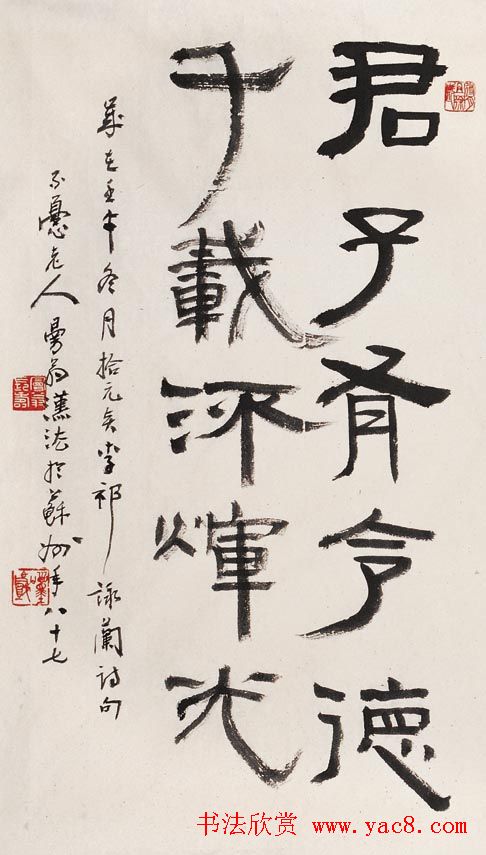 君子有令德
千載沐煇光
歲在壬午冬月拾元李祁詠蘭詩句
不憂老人曼翁漢法於蘇州年八十七
书法欣赏 www.yac8.com